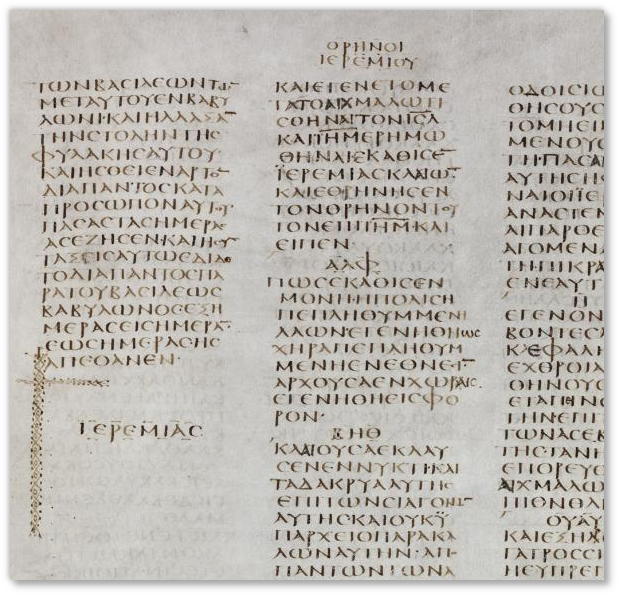 ΤΩΝΒΑCΙΛΕΩΝΤΩ̅
ΜΕΤΑΥΤΟΥΕΝΒΑΒΥ
ΛΩΝΙ·ΚΑΙΗΛΛΑΞΑ̅
ΤΗΝCΤΟΛΗΝΤΗC
ΦΥΛΑΚΗCΑΥΤΟΥ·
ΚΑΙΗCΘΕΙΕΝΑΡΤΟ̅
ΔΙΑΠΑΝΤΟCΚΑΤΑ
ΠΡΟCΩΠΟΝΑΥΤΟΥ·
ΠΑCΑCΤΑCΗΜΕΡΑ
ΑCΕΖΗCΕΝΚΑΙΗCΥ̅
ΤΑΞΙCΑΥΤΩΕΔΙΔΟ
ΤΟΔΙΑΠΑΝΤΟCΠΑ
ΡΑΤΟΥΒΑCΙΛΕΩC
ΒΑΒΥΛΩΝΟCΕΞΗ
ΜΕΡΑCΕΙCΗΜΕΡΑ̅
ΕΩCΗΜΕΡΑCΗC
ΑΠΕΘΑΝΕΝ·
ΙΕΡΕΜΙΑC
ΘΡΗΝΟΙ
ΙΕΡΕΜΙΟΥ
ΚΑΙΕΓΕΝΕΤΟΜΕ
ΤΑΤΟΑΙΧΜΑΛΩΤΙ
CΘΗΝΑΙΤΟΝΙC̅Λ̅
ΚΑΙΤΗΝΙΕΡΗΜΩ
ΘΗΝΑΙΕΚΑΘΙCΕ̅
ΪΕΡΕΜΙΑCΚΛΑΙΩ̅
ΚΑΙΕΘΡΗΝΗCΕΝ
ΤΟΝΘΡΗΝΟΝΤΟΥ
ΤΟΝΕΠΙΙΗΜΚΑΙ
ΕΙΠΕΝ
ΑΛΦ
ΠΩCΕΚΑΘΙCΕΝ
ΜΟΝΗΗΠΟΛΙCΗ
ΠΕΠΛΗΘΥΜΜΕΝΗ
ΛΑΩΝ·ΕΓΕΝΗΘΗΩC
ΧΗΡΑΠΕΠΛΗΘΥΜ
ΜΕΝΗΕΝΕΘΝΕΙ̅
ΑΡΧΟΥCΑΕΝΧΩΡΑΙC·
ΕΓΕΝΗΘΗΕΙCΦΟ
ΡΟΝ·
ΒΗΘ
ΚΛΑΙΟΥCΑΕΚΛΑΥ
CΕΝΕΝΝΥΚΤΙ·ΚΑΙ
ΤΑΔΑΚΡΥΑΑΥΤΗC
ΕΠΙΤΩΝCΙΑΓΟΝΩ̅
ΑΥΤΗCΚΑΙΟΥΚΫ
ΠΑΡΧΕΙΟΠΑΡΑΚΑ
ΛΩΝΑΥΤΗΝ·ΑΠ
ΠΑΝΤΩΝΤΩΝΑ
ΟΔΟΙCΙΩ
ΘΗCΟΥC
ΤΟΜΗΕΙ
ΜΕΝΟΥC
ΤΗ·ΠΑCΑ
ΑΥΤΗCΗ
ΝΑΙΟΪΕ
ΑΝΑCΤΕΝ
ΑΙΠΑΡΘΕ
ΑΓΟΜΕΝΑ
ΤΗΠΙΚΡΑ
ΕΝΕΑΥΤ
Η
ΕΓΕΝΟΝ
ΒΟΝΤΕC
ΚΕΦΑΛΗ
ΕΧΘΡΟΙΑ
ΘΗΝΟΥC
ΕΤΑΠΙΝ
ΤΗΝΕΠΙΤ
ΤΩΝΑCΕΒ
ΤΗCΤΑΝΗ
ΕΠΟΡΕΥΘ
ΑΙΧΜΑΛΩ
ΠΟΝΘΛ
ΟΥΑΥ
ΚΑΙΕΞΗΛ
ΓΑΤΡΟCCΙ
ΗΕΥΠΡΕΠ